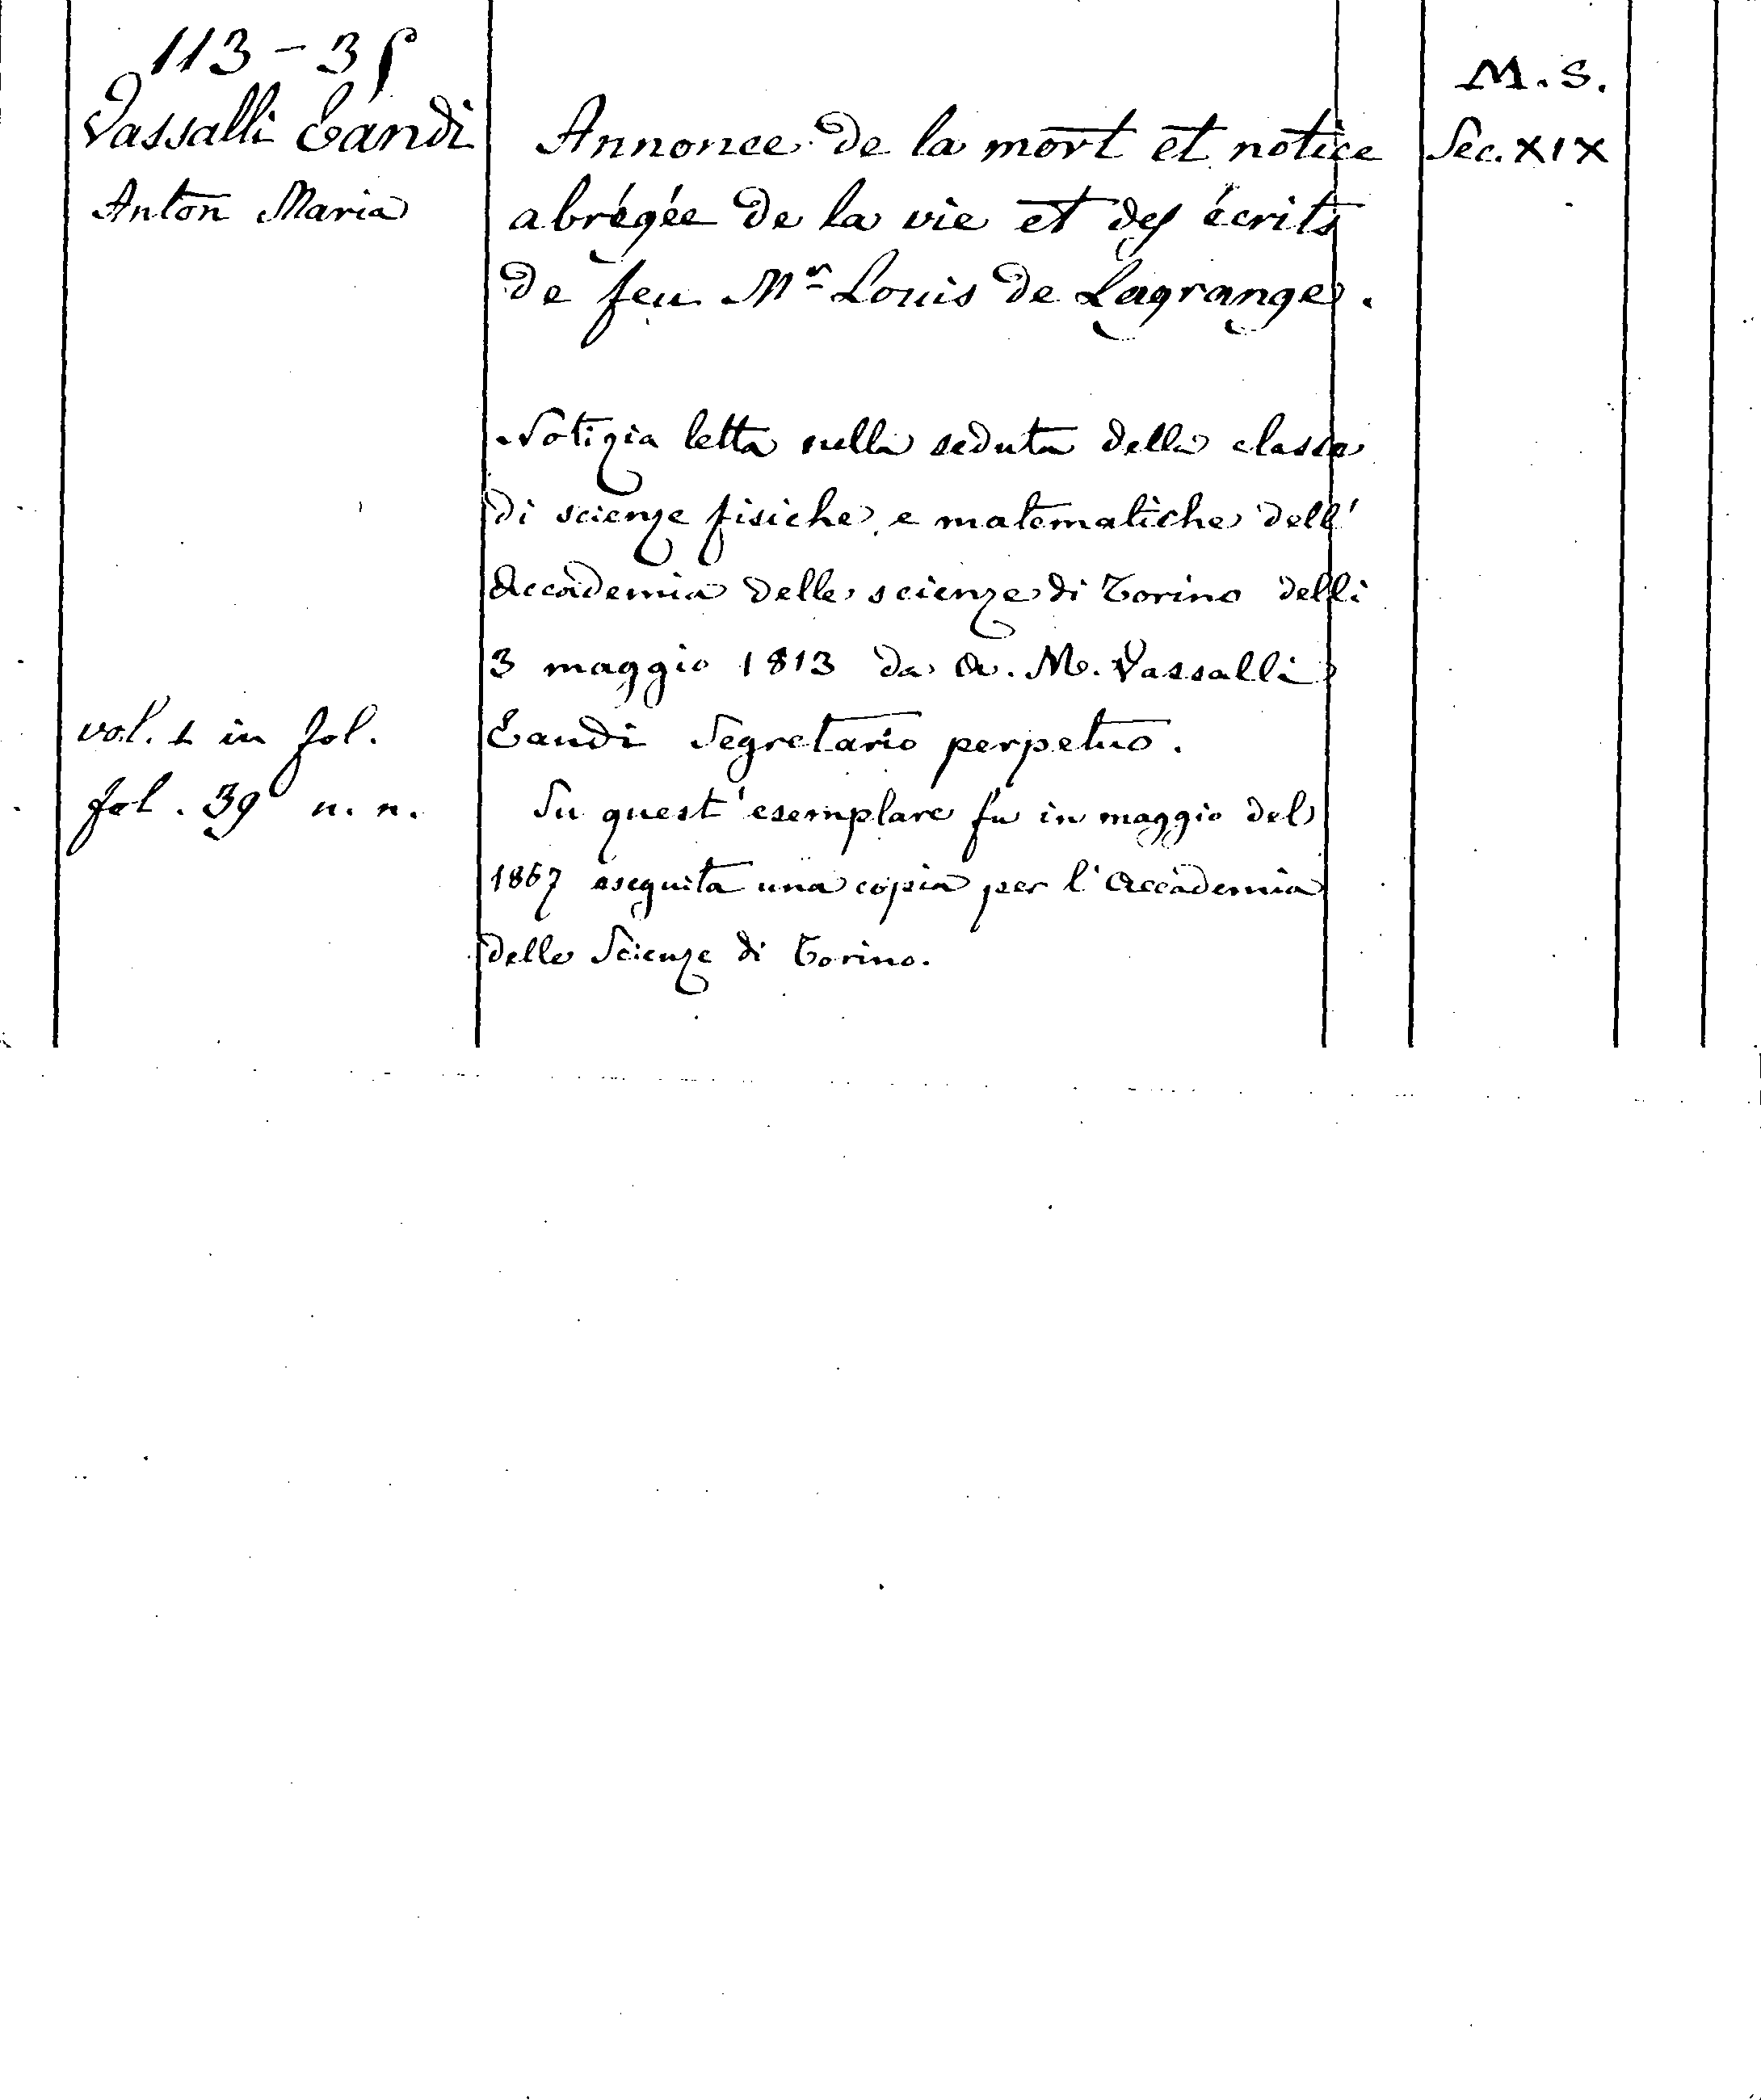 113 - 35
M. S.
Vassalli Eandi
Annonce de la mort et notice
Sec. XIX
Anton Maria
abrégée de la vie et des écrits
de feu Mr Louis de Lagrange.
Notizia letta nella seduta della classe
di scienze fisiche e matematiche dell'
Accademia delle scienze di Torino delli
3 maggio 1813 da A. M. Vassalli
vol. 1 in fol.
Eandi Segretario perpetuo.
fol. 39 n. n.
Su quest'esemplare fu in maggio del
1867 eseguita una copia per l'Accademia
delle Scienze di Torino.